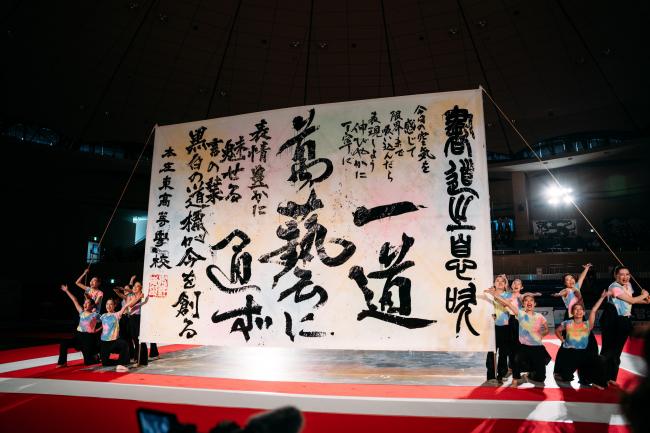 書道之息吹
今この空気を
感じて
限界まで
吸込んだら
表現しよう
伸びやかに
丁寧に
一道
萬藝に
通ず
表情豊かに
魅せる
言の葉
黒白の道標が今を創る
本庄東高等學校